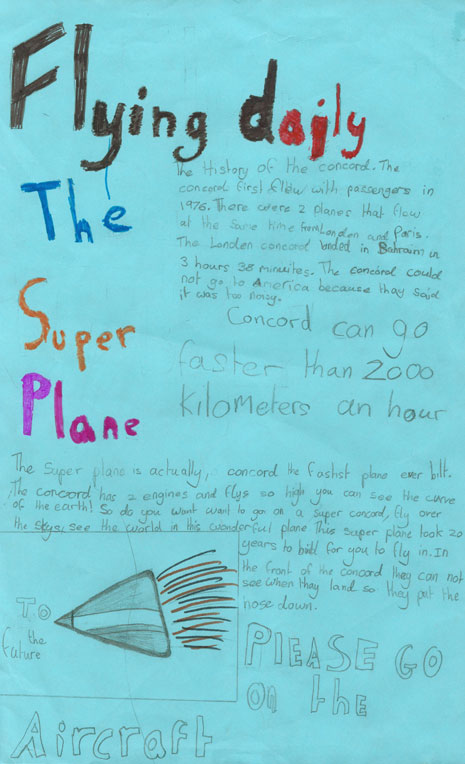 Flying daily
The
Super
Plane
The History of the concord. The
concord first flew with passengers in
1976. There were 2 planes that flew
at the same time from London and Paris.
The London concord landed in Bahrain in
3 hours 38 minuites. The concord could
not go to America because thay said
it was too noisy.
Concord can go
faster than 2000
kilometers an hour
The Super plane is actually, concord the fastist plane ever bilt.
The concord has 2 engines and flys so high you can see the curve
of the earth! So do you want want to go on a super concord, fly over
the skys, see the world in this wonderful plane This super plane took 20
years to bild for you to fly in. In
the front of the concord they can not
see when thay land so they put the
nose down.
To
the
future
PLEASE GO
on the
Aircraft